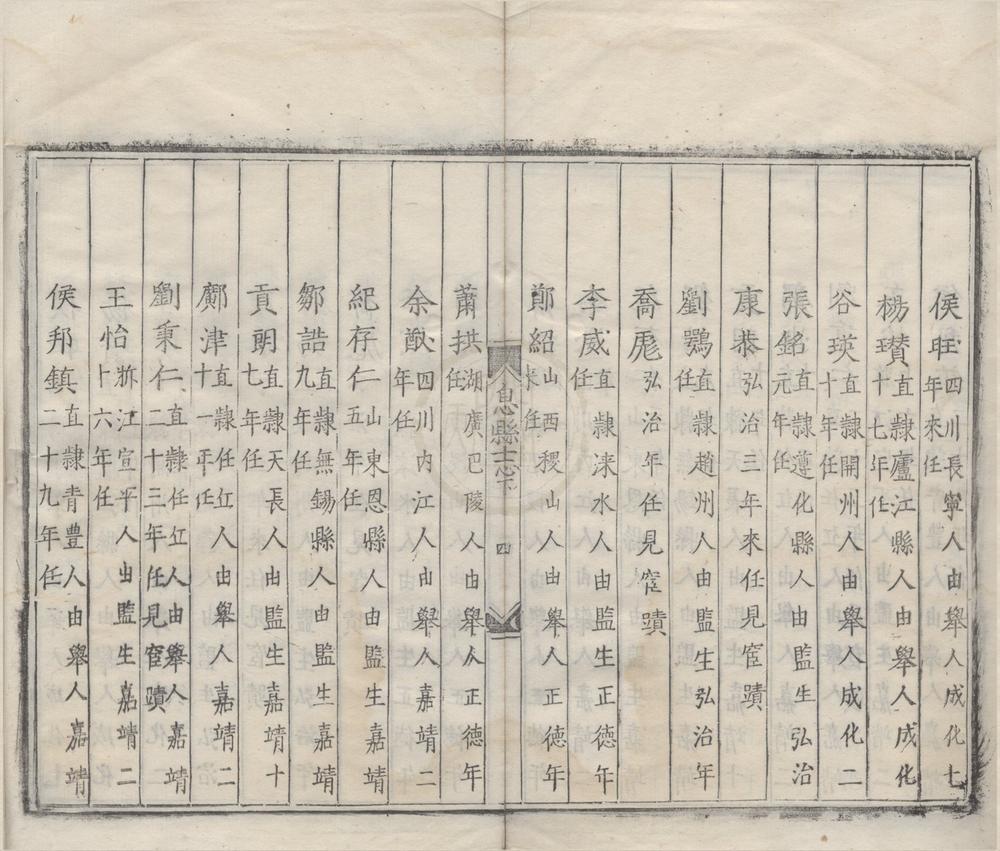 侯旺四川長寧人由舉人成化七年來任
楊瓚直隷廬江縣人由舉人成化十七年任
谷瑛直隷開州人由舉人成化二十年任
張銘直隷遵化縣人由監生弘治元年任
康恭弘治三年來任見宦蹟
劉鶚直隷趙州人由監生弘治年任
喬彪弘治年任見宦蹟
李威直隷涞水人由監生正德年任
鄭紹山西稷山人由舉人正德年來任
息縣志下 四
蕭拱湖廣巴陵人由舉人正德年任
余猷四川内江人由舉人嘉靖二年任
紀存仁山東恩縣人由監生嘉靖五年任
鄒誥直隷無錫縣人由監生嘉靖九年任
貢朝直隷天長人由監生嘉靖十七年任
鄺津直隷任丘人由舉人嘉靖二十一年任
劉秉仁直隷任丘人由舉人嘉靖二十三年任見宦蹟
王怡浙江宣平人由監生嘉靖二十六年任
侯邦鎮直隷青豐人由舉人嘉靖二十九年任